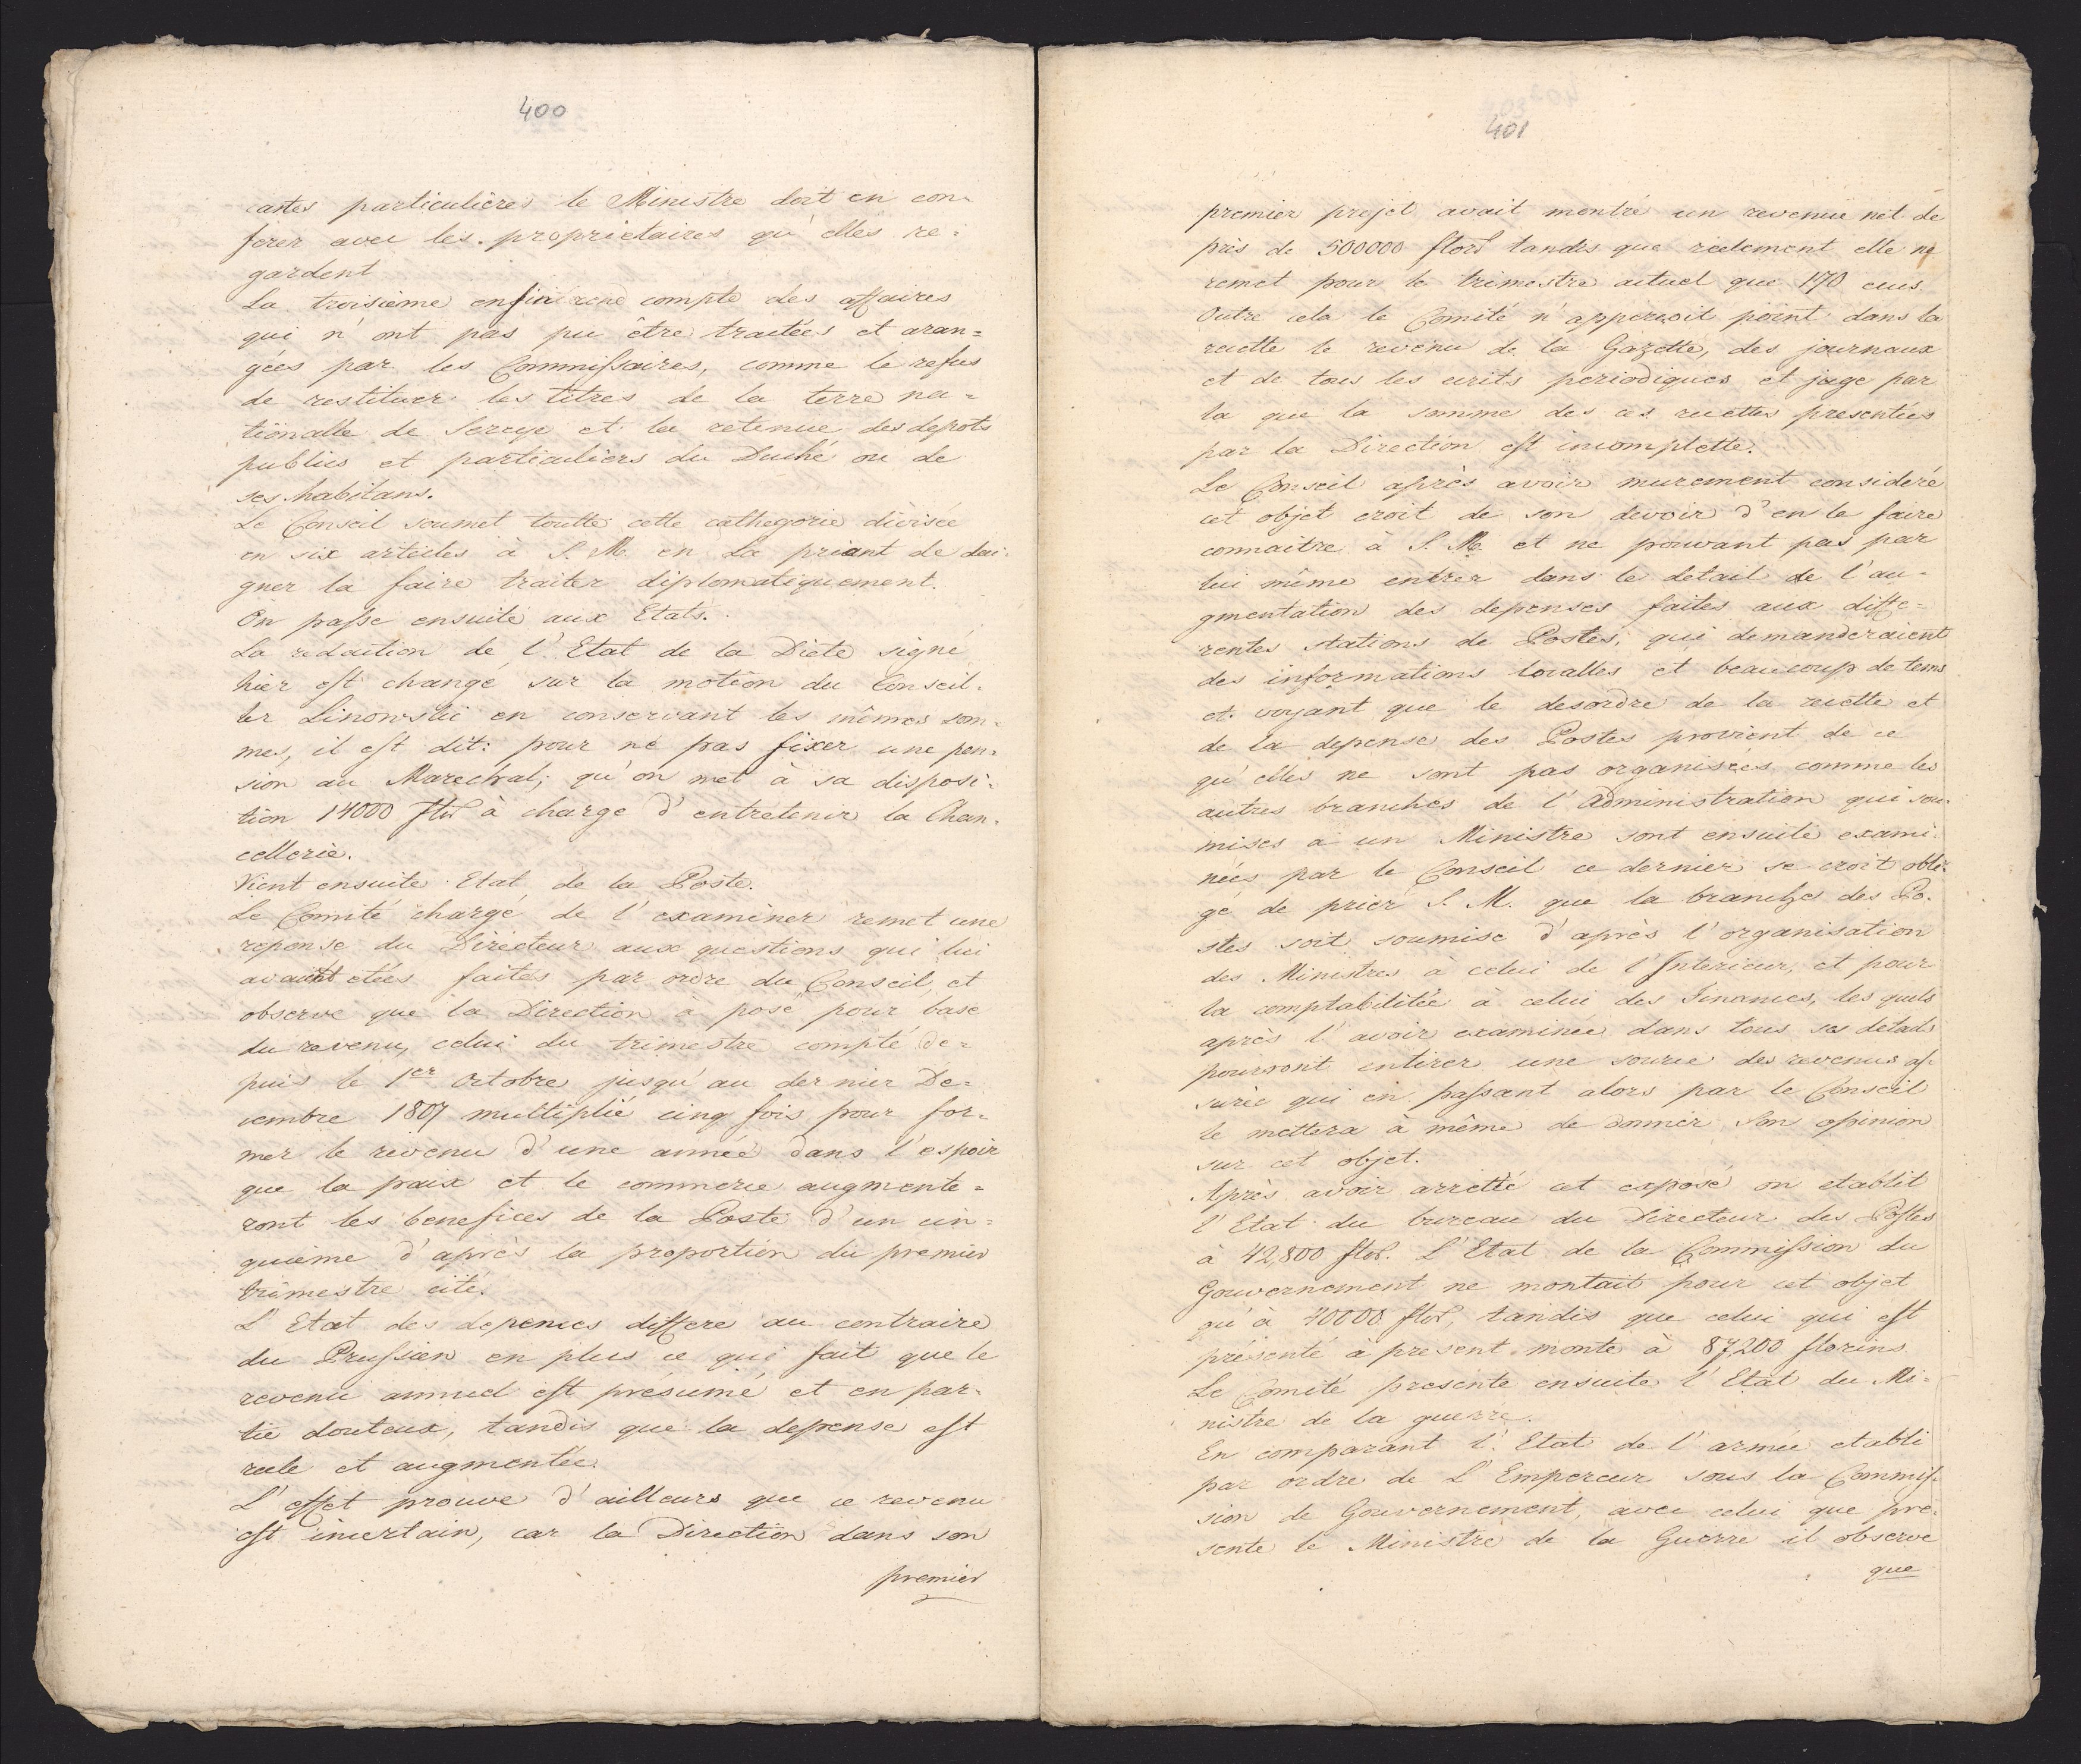 400
cartes particulières le Ministre doit en con-
ferer avec les proprietaires qu'elles re-
gardent
La troisième enfin rend compte des affaires
qui n'ont pas pu être traitées et aran=
gées par les Commissaires, comme le refus
de restituer les titres de la terre na=
tionalle de et la retenue des depots
publics et particuliers du Duché ou de
ses habitans.
Le Conseil soumet toutte cette cathegorie divisée
en six articles à S. M. en La priant de dai-
gner la faire traiter diplomatiquement.
On passe ensuite aux Etats.
La redaction de l'Etat de la Diete signé
hier est changé sur la motion du Conseil-
ler Linowski en conservant les mêmes som-
mes, il est dit: pour ne pas fixer une pen-
sion au Marechal; qu'on met à sa disposi-
tion 14000 fl à charge d'entretenir la Chan-
cellerie.
Vient ensuite Etat de la Poste.
Le Comité chargé de l'examiner remet une
reponse du Directeur aux questions qui lui
avaient etées faites par ordre du Conseil, et
observe que la Direction à posé pour base
du revenu, celui du trimestre compté de=
puis le 1er Octobre jusqu'au dernier De=
cembre 1807 multiplié cinq fois pour for-
mer le revenu d'une année dans l'espoir
que la paix et le commerce augmente=
ront les benefices de la Poste d'un cin=
quième d'après la proportion du premier
trimestre cité.
L'Etat des depences differe au contraire
du Prussien en plus ce qui fait que le
revenu annuel est présumé et en par-
tie douteux, tandis que la depense est
reele et augmentée.
L'effet prouve d'ailleurs que ce revenu
est incertain, car la Direction dans son
premier
401
premier projet avait montré un revenue net de
près de 500000 flor tandis que réelement elle ne
remet pour le trimestre actuel que 170 ecus.
Outre cela le Comité n'apperçoit point dans la
recette le revenu de la Gazette, des journaux
et de tous les ecrits periodiques et juge par
la que la somme des ces recettes presentées
par la Direction est incomplette.
Le Conseil après avoir murement consideré
cet objet croit de son devoir d'en le faire
connaitre à S. M. et ne pouvant pas par
lui même entrer dans le detail de l'au-
gmentation des depenses faites aux diffe=
rentes stations de Postes; qui demanderaient
des informations localles et beaucoup de tems
et voyant que le desordre de la recette et
de la depense des Postes provient de ce
qu'elles ne sont pas organisées comme les
autres branches de l'Administration qui sou-
mises a un Ministre sont ensuite exami-
nées par le Conseil ce dernier se croit obli-
gé de prier S. M. que la branche des Po-
stes soit soumise d'après l'organisation
des Ministres à celui de l'Interieur, et pour
la comptabilitée à celui des Finances, les quels
après l'avoir examinée dans tous ses details
pourront entirer une source des revenus as-
surée qui en passant alors par le Conseil
le mettera à même de donner son opinion
sur cet objet.
Après avoir arretté cet exposé on etablit
l'Etat du bureau du Directeur des Postes
à 42,800 flor. L'Etat de la Commission du
Gouvernement ne montait pour cet objet
qu'à 40000 flor, tandis que celui qui est
présenté à present monte à 87,200 florins
Le Comité presente ensuite l'Etat du Mi-
nistre de la guerre.
En comparant l'Etat de l'armée etabli
par ordre de L'Empereur sous la Commis-
sion de Gouvernement, avec celui que pre-
sente le Ministre de la Guerre il observe
que